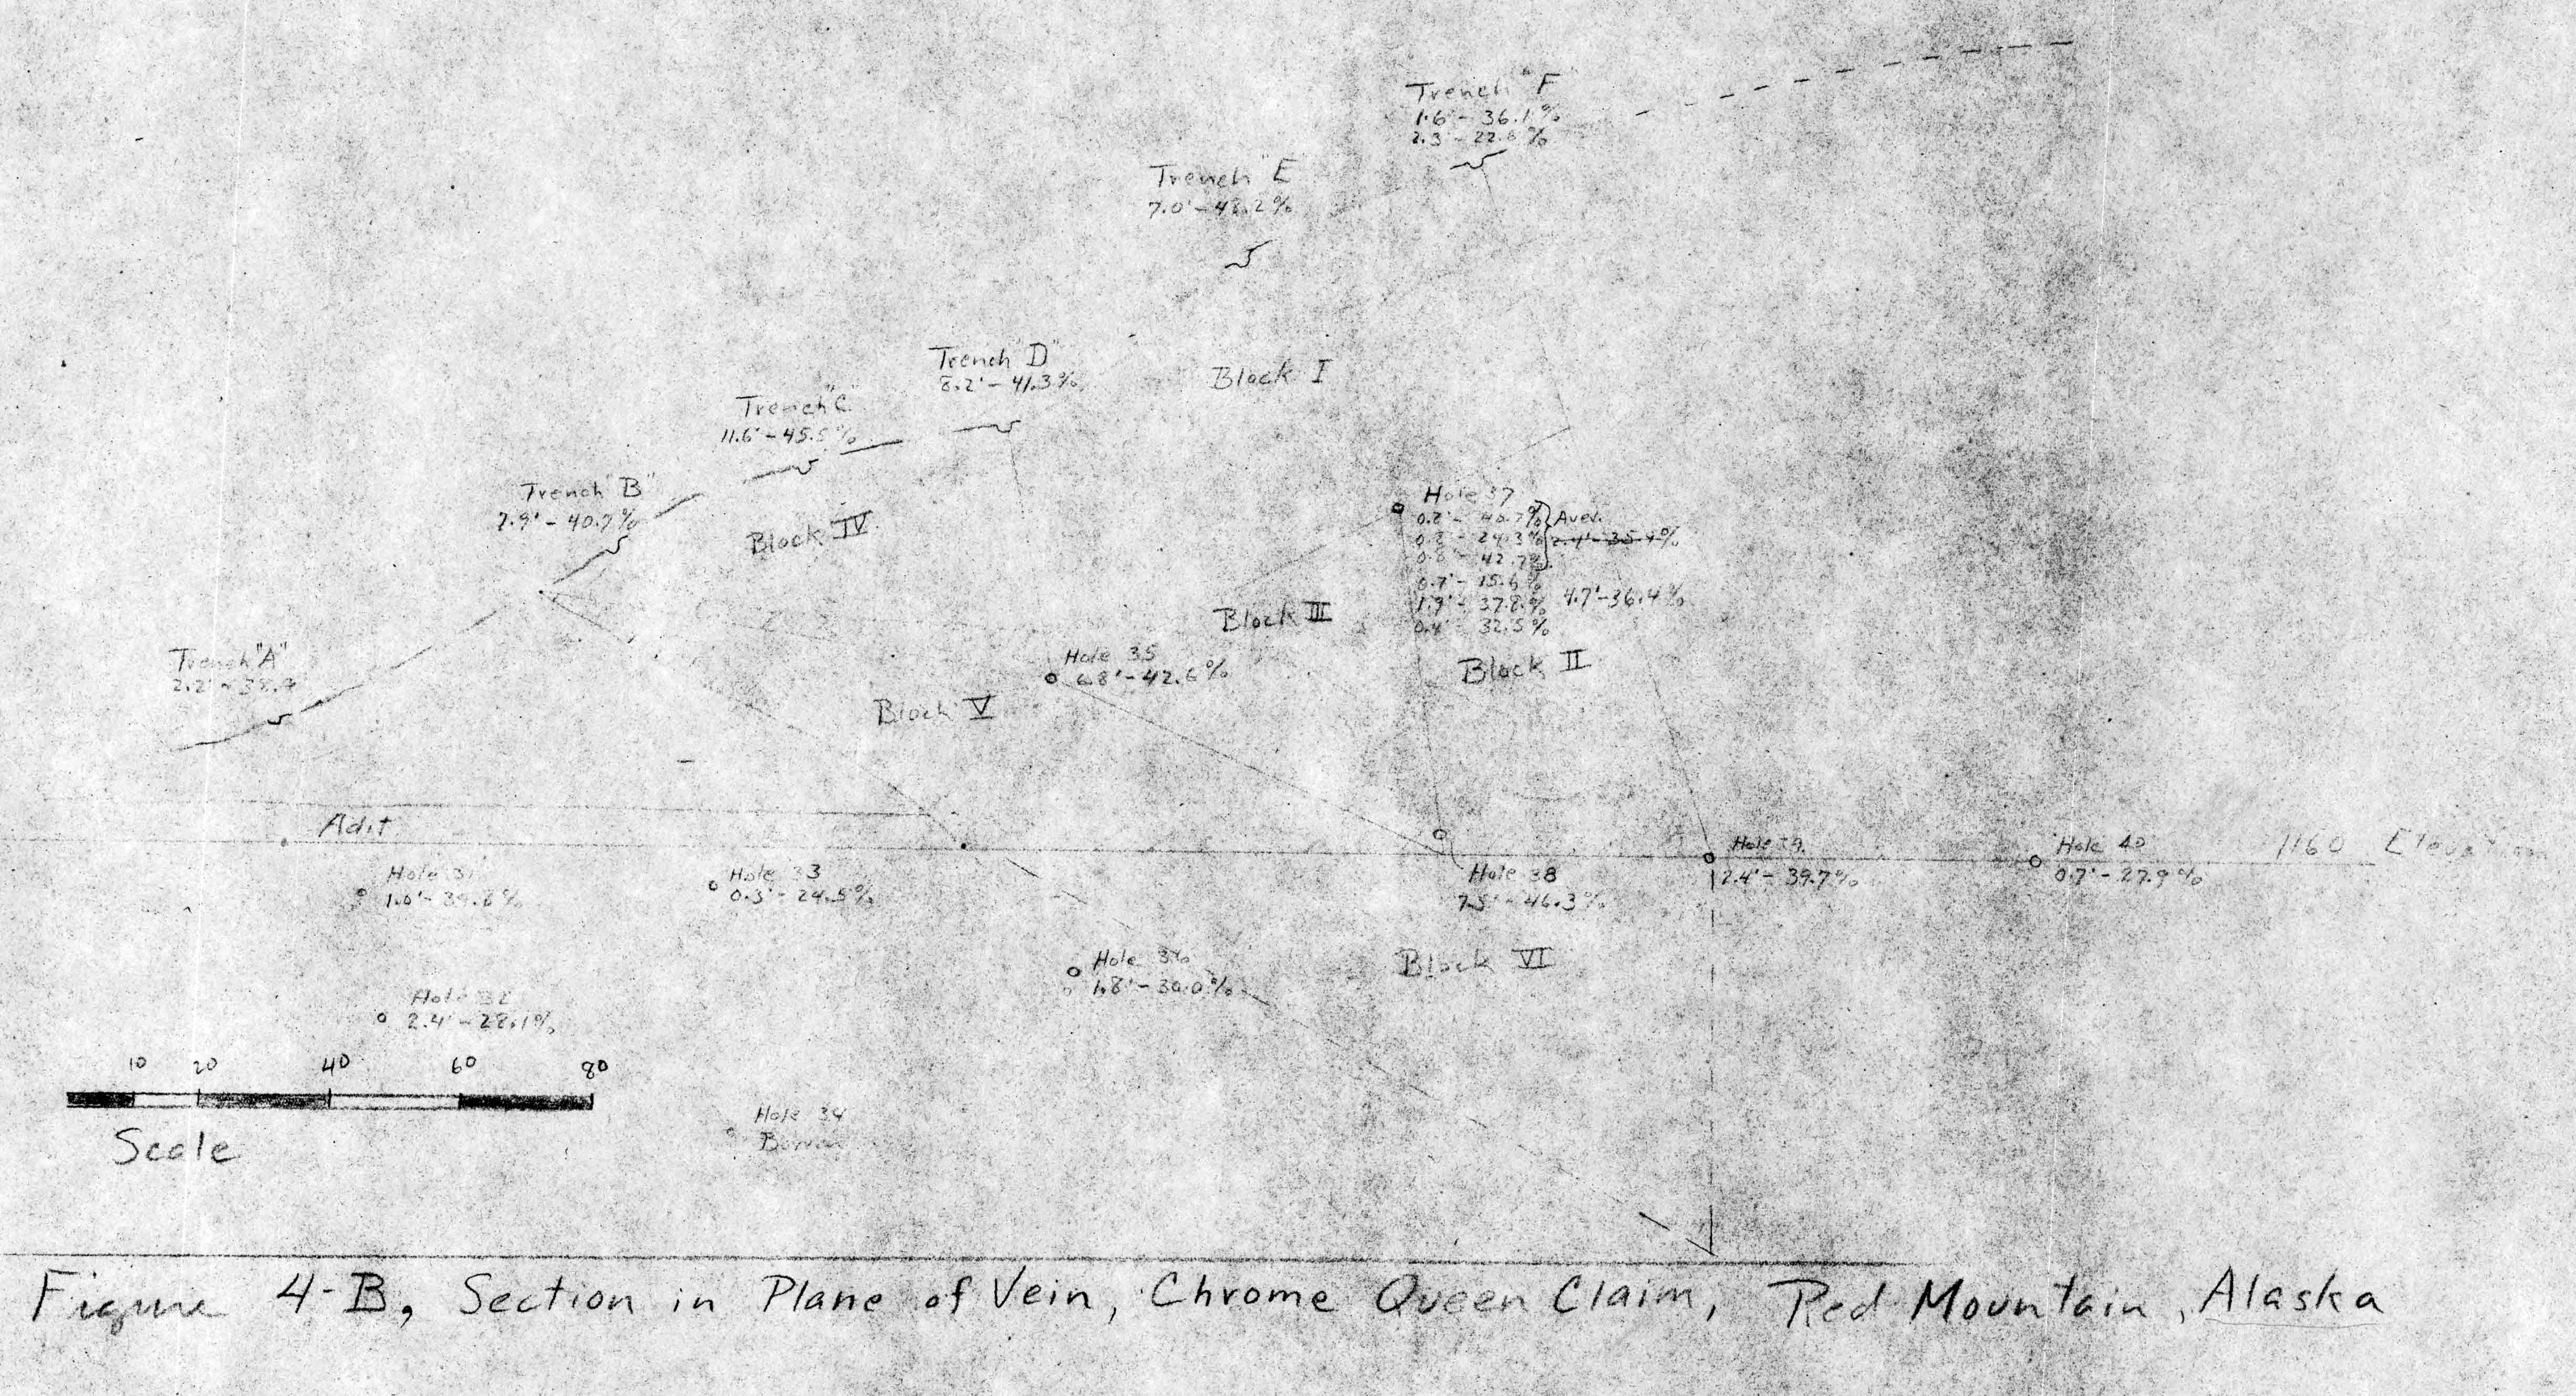 Trench "F"
1.6' - 36.1%
2.3' - 22.6%
Trench "E"
7.0' - 48.2%
Trench "D"
8.2' - 41.3%
Block I
Trench "C"
11.6' - 45.5%
Trench "B"
7.9' - 40.7%
Block IV
Hole 37
0.8' - 40.7%
0.8' - 24.3%
0.8' - 42.7%
0.7' - 15.6%
1.9' - 37.8%
0.4' - 32.5%
Aver.
2.4' - 35.9%
4.7' - 36.4%
Block III
Block II
Trench "A"
2.2' - 38.9
Hole 35
6.8' - 42.6%
Block V
Adit
Hole 31
1.0' - 39.8%
Hole 33
0.3' - 24.5%
Hole 38
7.5' - 46.3%
Hole 39
2.4' - 39.7%
Hole 40
0.7' - 27.9%
1160 Elevation
Hole 36
1.8' - 30.0%
Block VI
Hole 32
2.4' - 28.1%
10 20 40 60 80
Scale
Hole 34
Barren
Figure 4-B, Section in Plane of Vein, Chrome Queen Claim, Red Mountain, Alaska